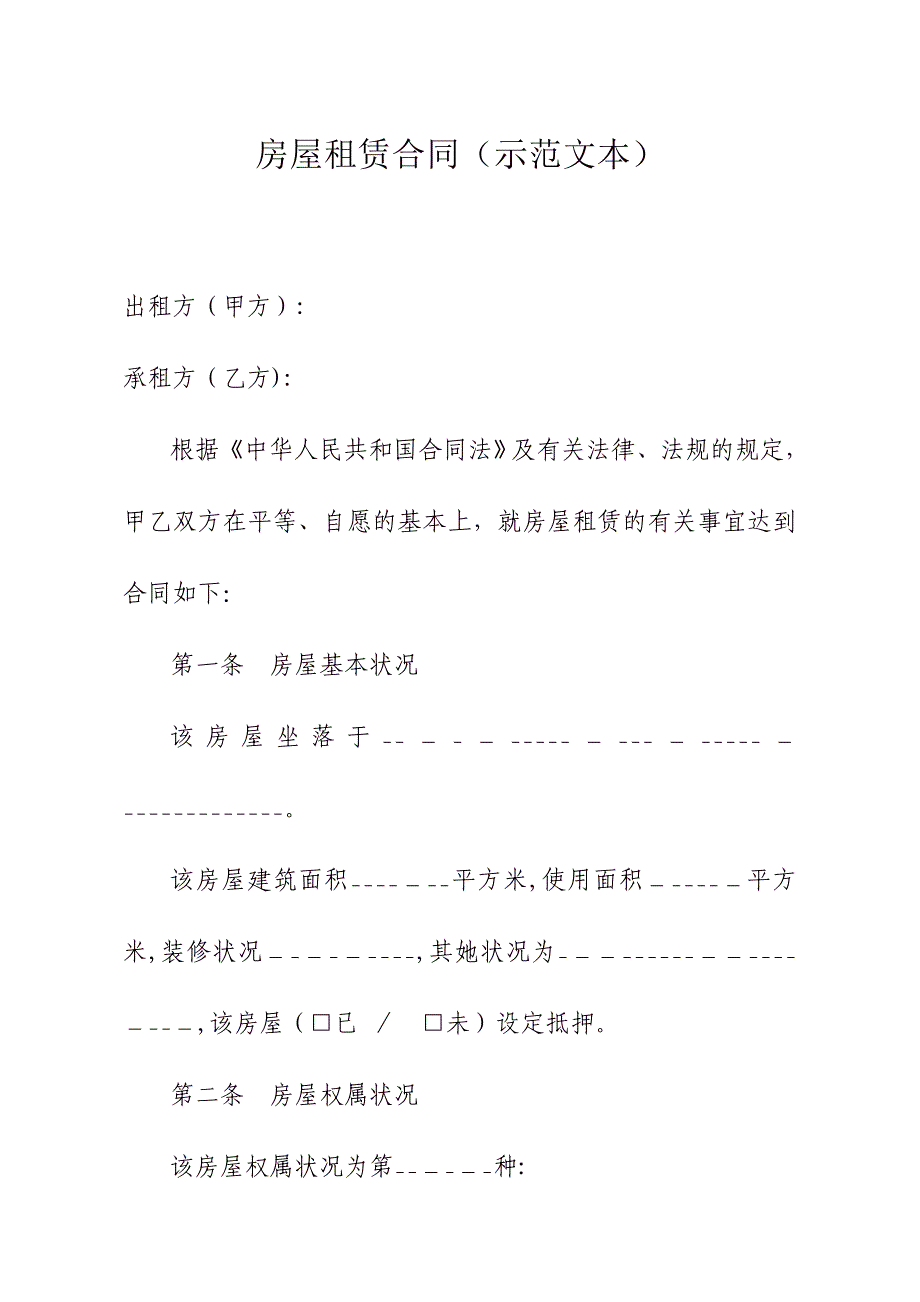 房屋租赁合同（示范文本）
出租方（甲方）:
承租方（乙方):
根据《中华人民共和国合同法》及有关法律、法规的规定，
甲乙双方在平等、自愿的基本上，就房屋租赁的有关事宜达到
合同如下:
第一条　房屋基本状况
该房屋坐落于-- _ - _ ----- _ --- _ ----- _
-------------。
该房屋建筑面积----_--平方米,使用面积_----_平方
米,装修状况_-_-_----,其她状况为-_-_------_-_----
_---_,该房屋（□已 ∕　□未）设定抵押。
第二条　房屋权属状况
该房屋权属状况为第--_-_-种: